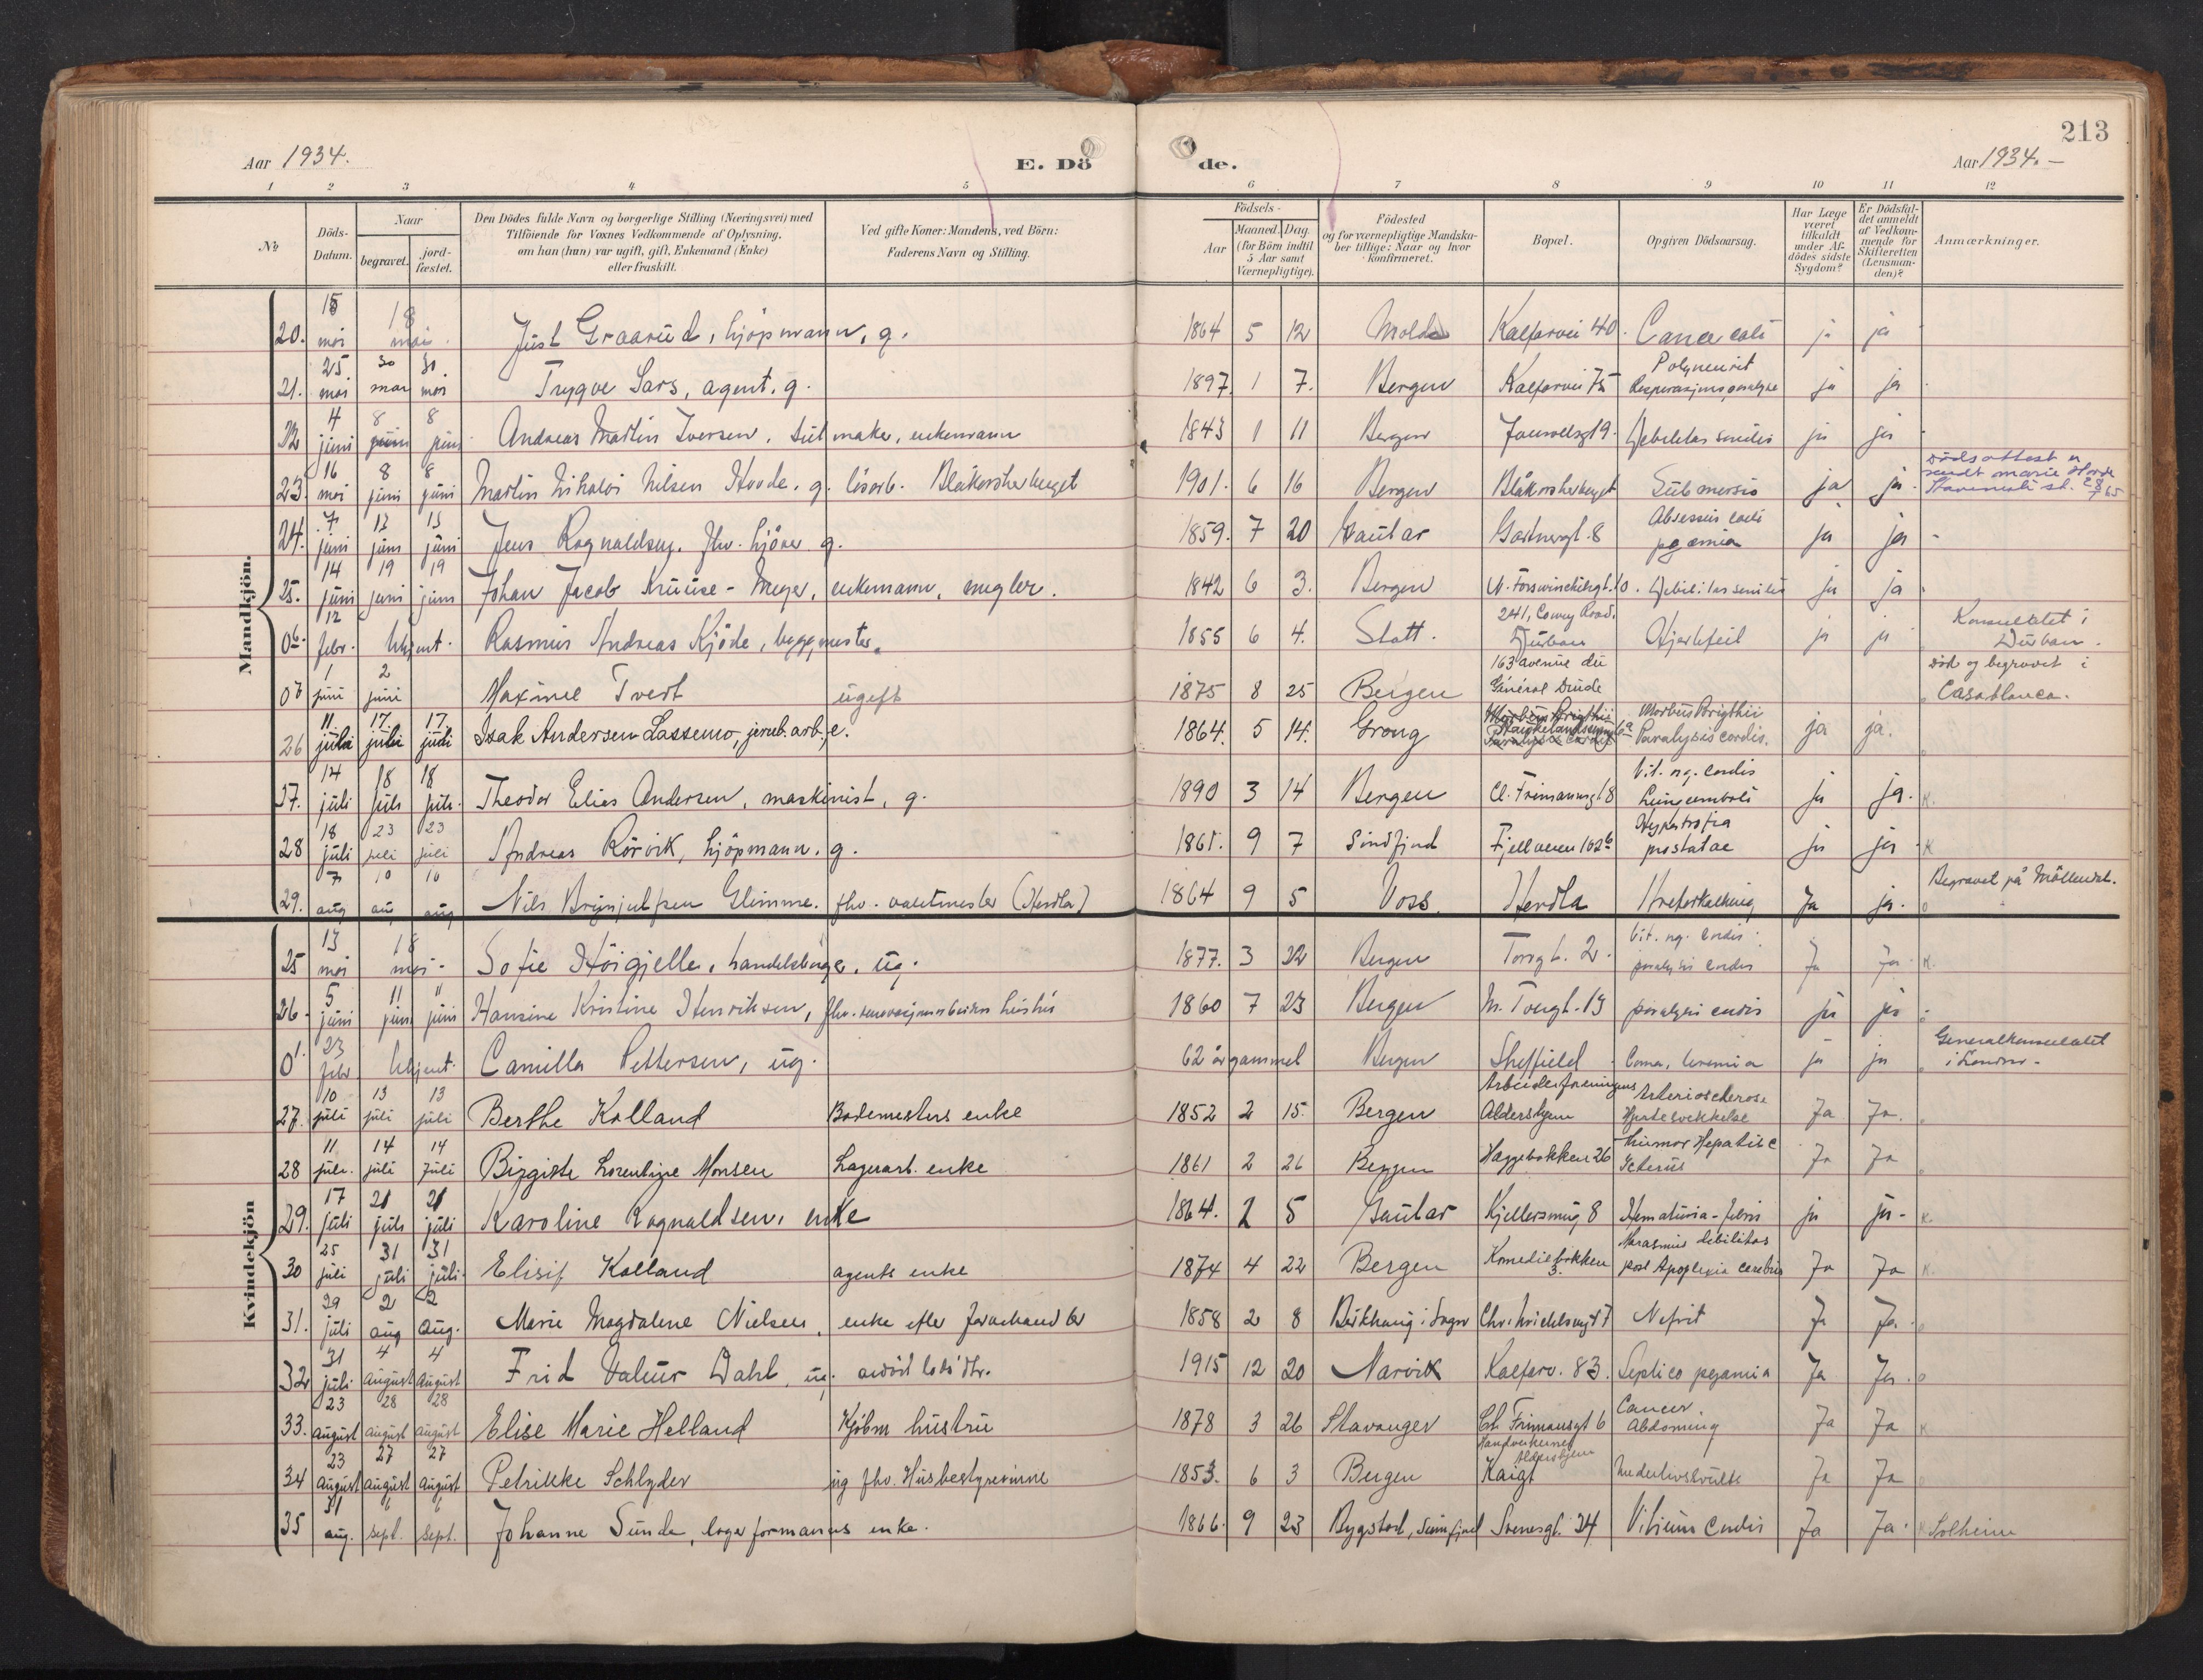 213
Aar 1934.
E. Dö
de.
Aar 1934. –
1 2 3 4 5 6 7 8 9 10 11 12
No
Döds-
Datum.
Naar
begravet.
jord-
fæstet.
Den Dödes fulde Navn og borgerlige Stilling (Næringsvei) med
Tilföiende for Voxnes Vedkommende af Oplysning,
om han (hun) var ugift, gift, Enkemand (Enke)
eller fraskilt.
Ved gifte Koner: Mandens, ved Börn:
Faderens Navn og Stilling.
Födsels-
Aar
Maaned. Dag.
(for Börn indtil
5 Aar samt
Værnepligtige).
Födested
og for værnepligtige Mandska-
ber tillige: Naar og hvor
konfirmeret.
Bopæl.
Opgiven Dödsaarsag.
Har Læge
været
tilkaldt
under Af-
dödes sidste
Sygdom?
Er Dödsfal-
det anmeldt
af Vedkom-
mende for
Skifteretten
(Lensman-
den)?
Anmærkninger.
Mandkjön.
20. 15 mai 18 mai. Just Graarud, kjöpmann, g. 1864 5 12 Molde Kalfarvei 40. Cancer coli ja ja
21. 25 mai 30 mai 30 mai Trygve Sars, agent. g. 1897. 1 7. Bergen Kalfarvei 75 Polyneurit ja ja
22 4 juni 8 juni 8 juni Andreas Martin Iversen, enkemann 1843 1 11 Bergen Debilitas senilis ja ja
23. 16 mai 8 juni 8 juni Martin Nikolai Nilsen Hovde. g. lösarb. Blåkorsherberget 1901. 6 16 Bergen Blåkorsherberget Submersio ja ja. Dödsattest er
sendt Marie Hovde
24. 7 juni 13 juni 13 juni Jens Ragnaldsen. fhv. g. 1859. 7 20 Gaular Gartnergt. 8 Absessus coli
pyæmia ja ja -
25. 14 juni 19 juni 19 juni Johan Jacob Kruuse-Meyer, enkemann, megler. 1842 6 3. Bergen Debilitas senilis ja ja
06. 12 febr. Ukjent. Rasmus Andreas Kjöde, byggmester. 1855 6 4. Statt. 241, Cowey Road.
Durban Hjertefeil ja ja Konsulatet i
Durban.
07 1 juni 2 juni Maxime Tvedt ugift 1875 8 25 Bergen 163 avenue du
Général Drude død og begravet i
Casablanca.
26 11. juli 17. juli 17. juli Isak Andersen Lassemo, jernb. arb., e. 1864. 5 14. Grong Morbus Brigthii
Paralysis cordis. ja ja.
27. 14 juli 18 juli 18 juli. Theodor Elias Andersen, maskinist, g. 1890 3 14 Bergen Cl. Frimannsgt 8 Vit. org. cordis
Lungeemboli ja ja. K.
28 18 juli 23 juli 23 juli Andreas Rörvik, kjöpmann. g. 1865. 9 7 Sundfjord Fjellveien 102b Hypertrofia
prostatae ja ja K
29. 7 aug 10 au 10 aug Nils Brynjulfsen Glimme. fhv. vaktmester (Herdla) 1864 9 5 Voss. Herdla Åreforkalkning Ja ja. Begravet på Möllendal.
Kvindekjön
25 13 mai 18 mai - Sofie Höigjelle, handelsborger. ug. 1877. 3 22 Bergen Torvgt. 2. Vit. org. cordis
paralysis cordis Ja Ja. K.
26. 5 juni 11 juni 11 juni Hansine Kristine Henriksen, fhv. renovasjonsarbeiders hustru 1860 7 23 Bergen paralysis cordis ja ja
01. 23 febr Ukjent. Camilla Pettersen, ug. 62 år gammel Bergen Sheffield Coma, uremia ja ja Generalkonsulatet
i London -
27. 10 juli 13 juli 13 juli Berthe Kolland Bademesters enke 1852 2 15. Bergen Arbeiderforeningens
Aldershjem Arteriosclerose
Hjertesvekkelse Ja Ja.
28 11 juli. 14 juli 14 juli Birgitte Lorentzine Monsen Lagerarb. enke 1861 2 26 Bergen Heggebakken 26 Tumor Hepatis c
Icterus Ja Ja
29. 17 juli 21 juli 21 juli Karoline Ragnaldsen, enke 1864. 2 5 Gaular Kjellersmug 8 Hematuria - febris ja ja - K.
30 25 juli 31 juli 31 juli Elisif Kolland agents enke 1874 4 22 Bergen Komediebakken
3. Marasmus debilitas
post Apoplexia cerebri Ja Ja K.
31. 29 juli 2 aug 2 aug. Marie Magdalene Nielsen, enke efter 1858 2 8 Nefrit Ja Ja.
32 31 juli 4 august 4 august Frid Valeur Dahl, ug. 1915 12 20 Narvik Kalfarv. 83. Septico pyæmia Ja Ja.
33. 23 august 28 august 28 august Elise Marie Helland Kjöbm hustru 1878 3 26 Stavanger Cl. Frimansgt 6 Cancer
Abdominis Ja Ja K.
34 23 august 27 august 27 august Petrikke Schlyder ug fhv. Husbestyrerinne 1853. 6 3 Bergen Handverkernes
Aldershjem
Kaigt Ja Ja
35 31 aug. 6 sept. 6 sept. Johanne Sunde, lagerformanns enke. 1866. 9 23 Bygstad, Sunnfjord Sverresgt. 24 Vitium cordis Ja Ja. K Solheim